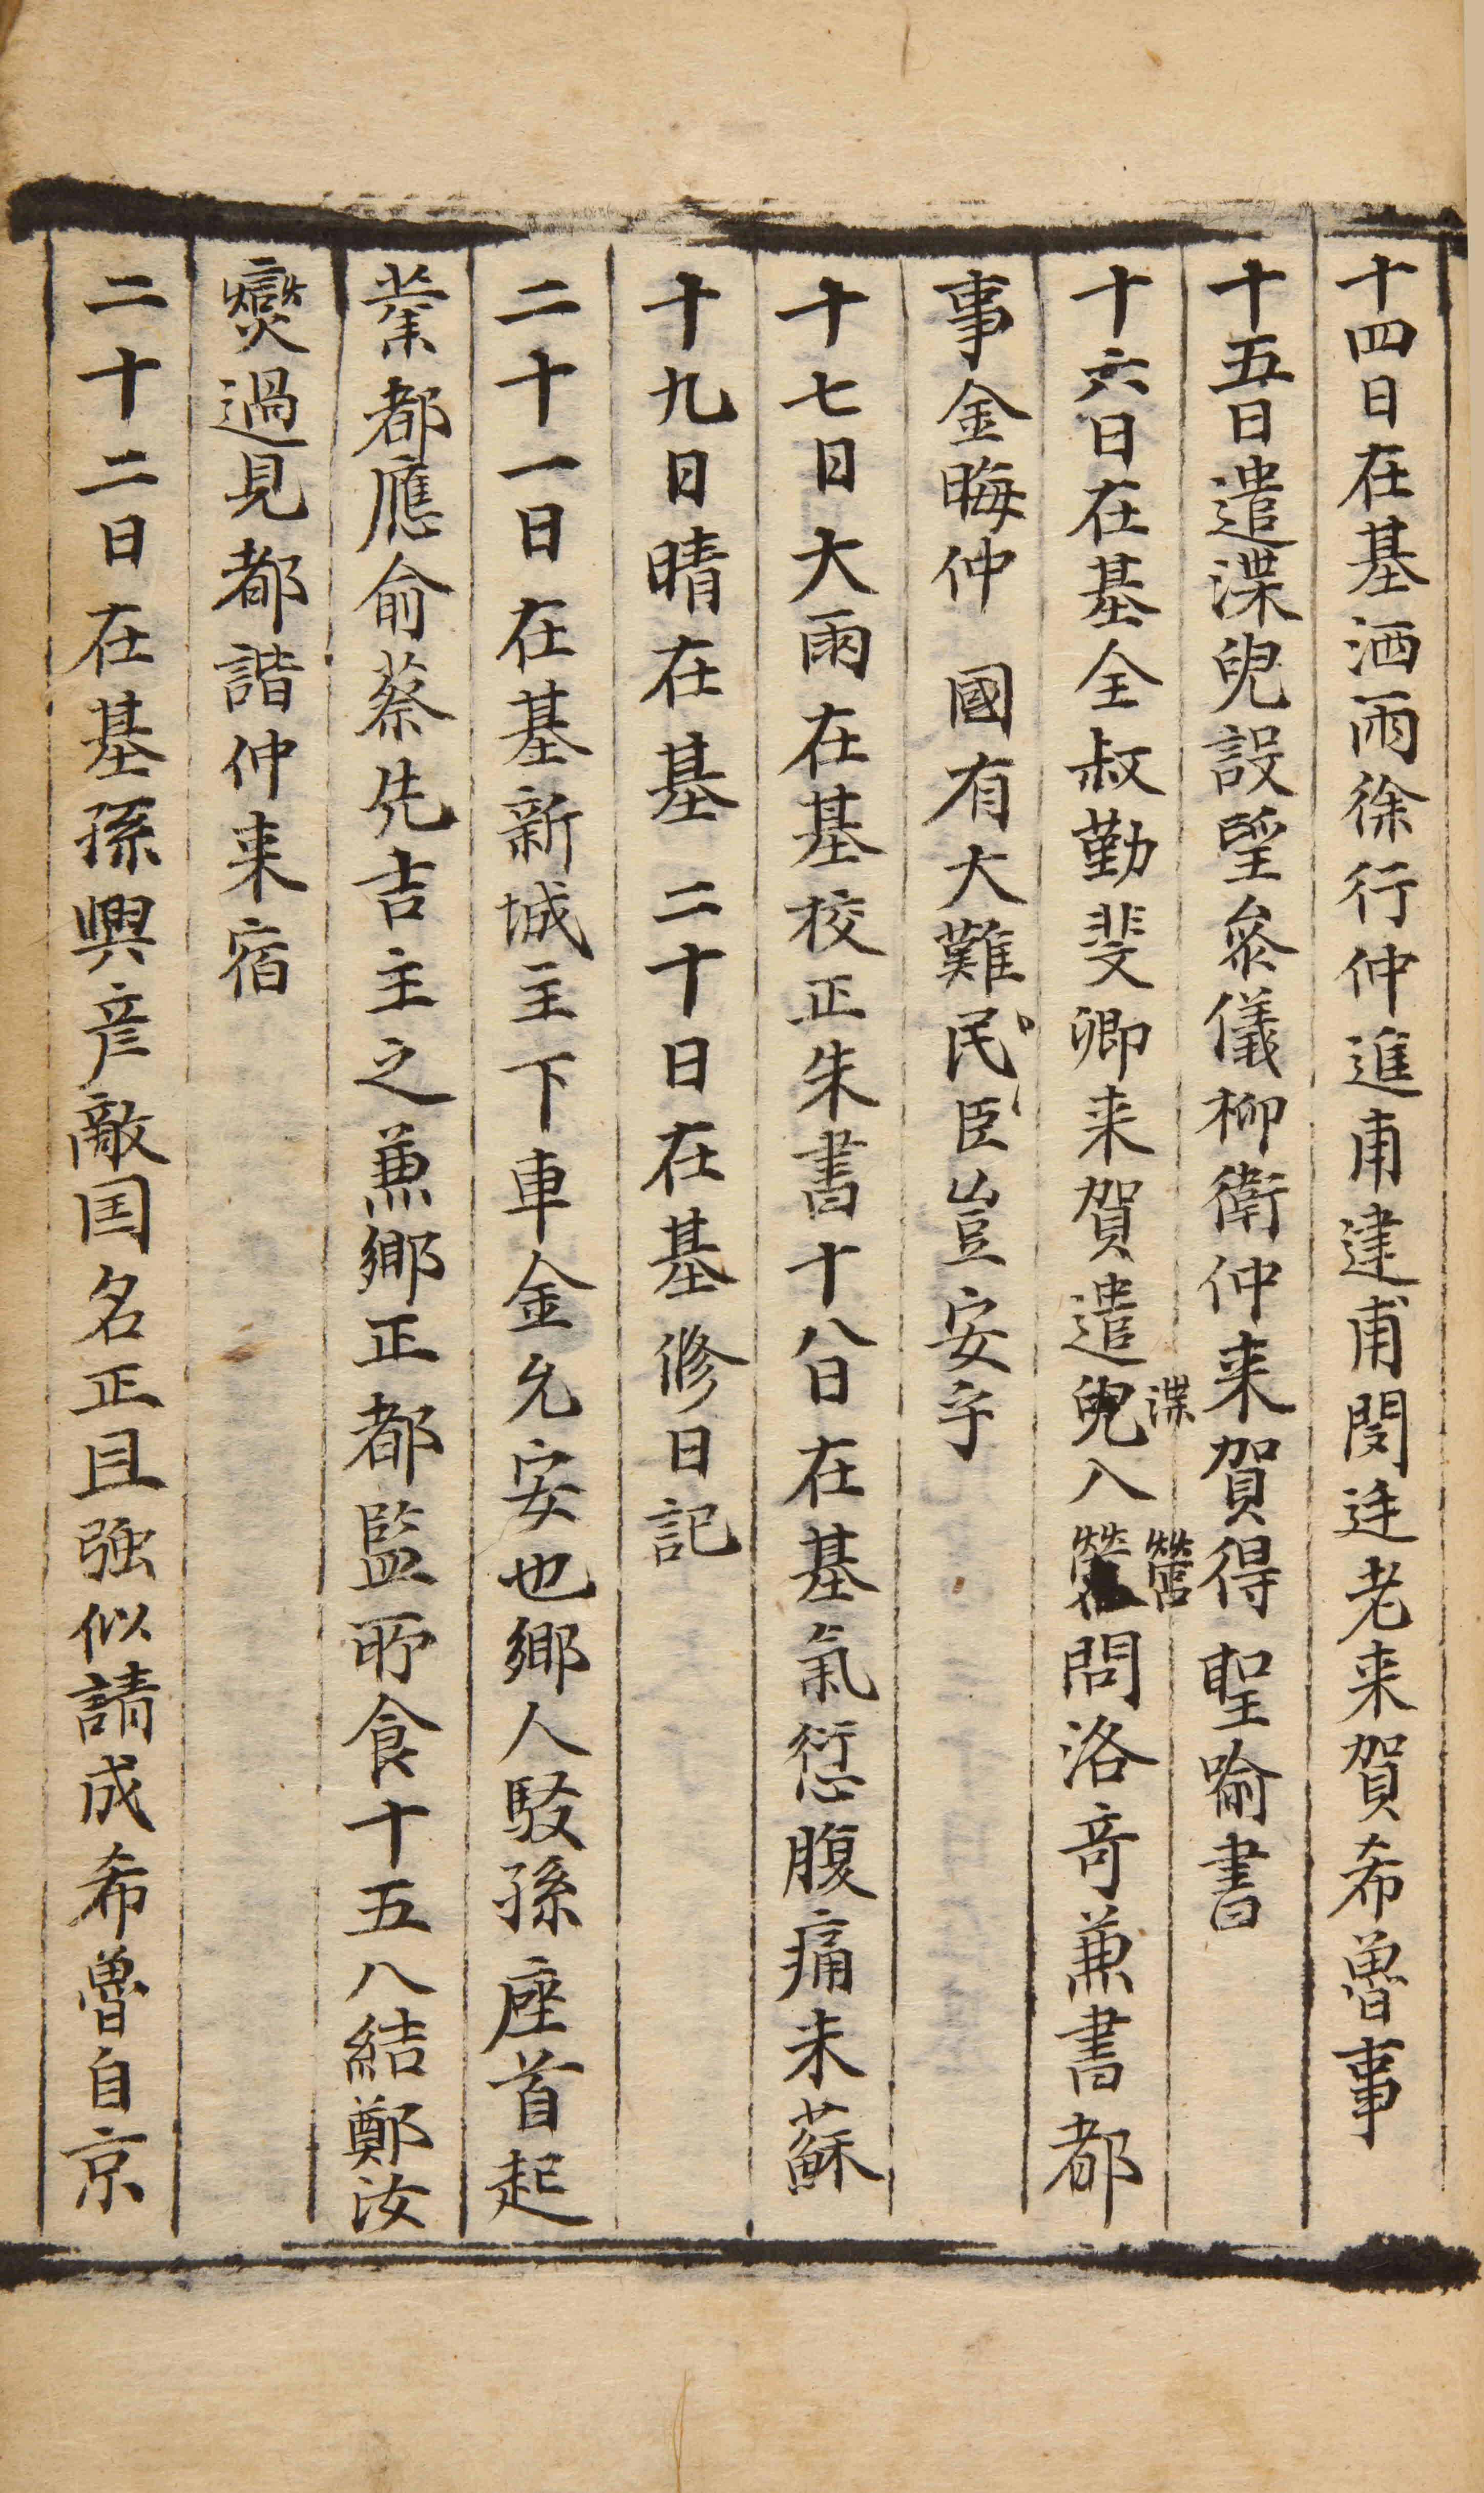 十四日在基洒雨徐行仲進甫建甫閔廷老来賀希魯事
十五日遣渫兒設望叅儀柳衛仲来賀得聖喻書
十六日在基全叔勤斐卿来賀遣渫兒入營問洛奇兼書都
事金晦仲 國有大難民臣豈安乎
十七日大雨在基校正朱書十八日在基氣愆腹痛未蘇
十九日晴在基 二十日在基 修日記
二十一日在基新城主下車金允安也鄕人駁孫座首起
業都應俞蔡先吉主之兼鄕正都監所食十五八結鄭汝
燮過見都諧仲来宿
二十二日在基孫興彦敵国名正且強似請成希魯自京